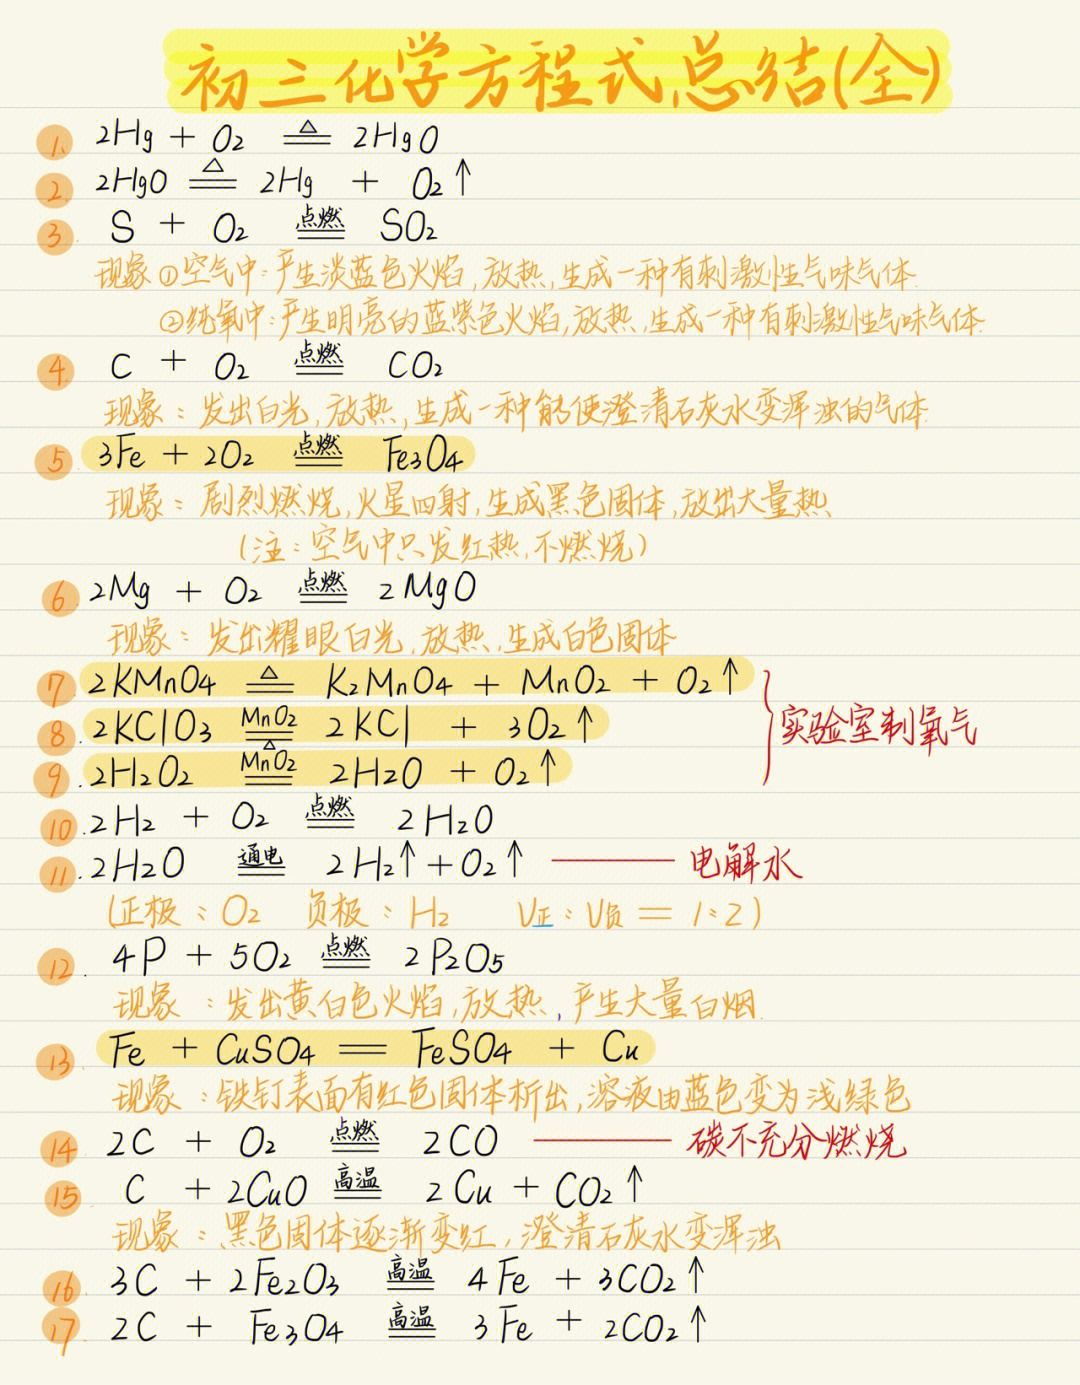 初三化学方程式总结(全)
1. 2Hg + O₂ ≜ 2HgO
2. 2HgO ≜ 2Hg + O₂↑
3. S + O₂ 点燃 SO₂
现象①空气中:产生淡蓝色火焰,放热,生成一种有刺激性气味气体.
②纯氧中:产生明亮的蓝紫色火焰,放热,生成一种有刺激性气味气体.
4. C + O₂ 点燃 CO₂
现象:发出白光,放热,生成一种能使澄清石灰水变浑浊的气体.
5 3Fe + 2O₂ 点燃 Fe₃O₄
现象:剧烈燃烧,火星四射,生成黑色固体,放出大量热、
(注:空气中只发红热,不燃烧)
6. 2Mg + O₂ 点燃 2MgO
现象:发出耀眼白光,放热,生成白色固体
7. 2KMnO₄ ≜ K₂MnO₄ + MnO₂ + O₂↑
8. 2KClO₃ MnO₂ △ 2KCl + 3O₂↑
实验室制氧气
9. 2H₂O₂ MnO₂ 2H₂O + O₂↑
10. 2H₂ + O₂ 点燃 2H₂O
11. 2H₂O 通电 2H₂↑+O₂↑ —— 电解水
(正极:O₂ 负极:H₂ V正:V负 = 1:2)
12. 4P + 5O₂ 点燃 2P₂O₅
现象:发出黄白色火焰,放热,产生大量白烟.
13. Fe + CuSO₄ = FeSO₄ + Cu
现象:铁钉表面有红色固体析出,溶液由蓝色变为浅绿色
14 2C + O₂ 点燃 2CO —— 碳不充分燃烧
15 C + 2CuO 高温 2Cu + CO₂↑
现象:黑色固体逐渐变红,澄清石灰水变浑浊
16 3C + 2Fe₂O₃ 高温 4Fe + 3CO₂↑
17. 2C + Fe₃O₄ 高温 3Fe + 2CO₂↑